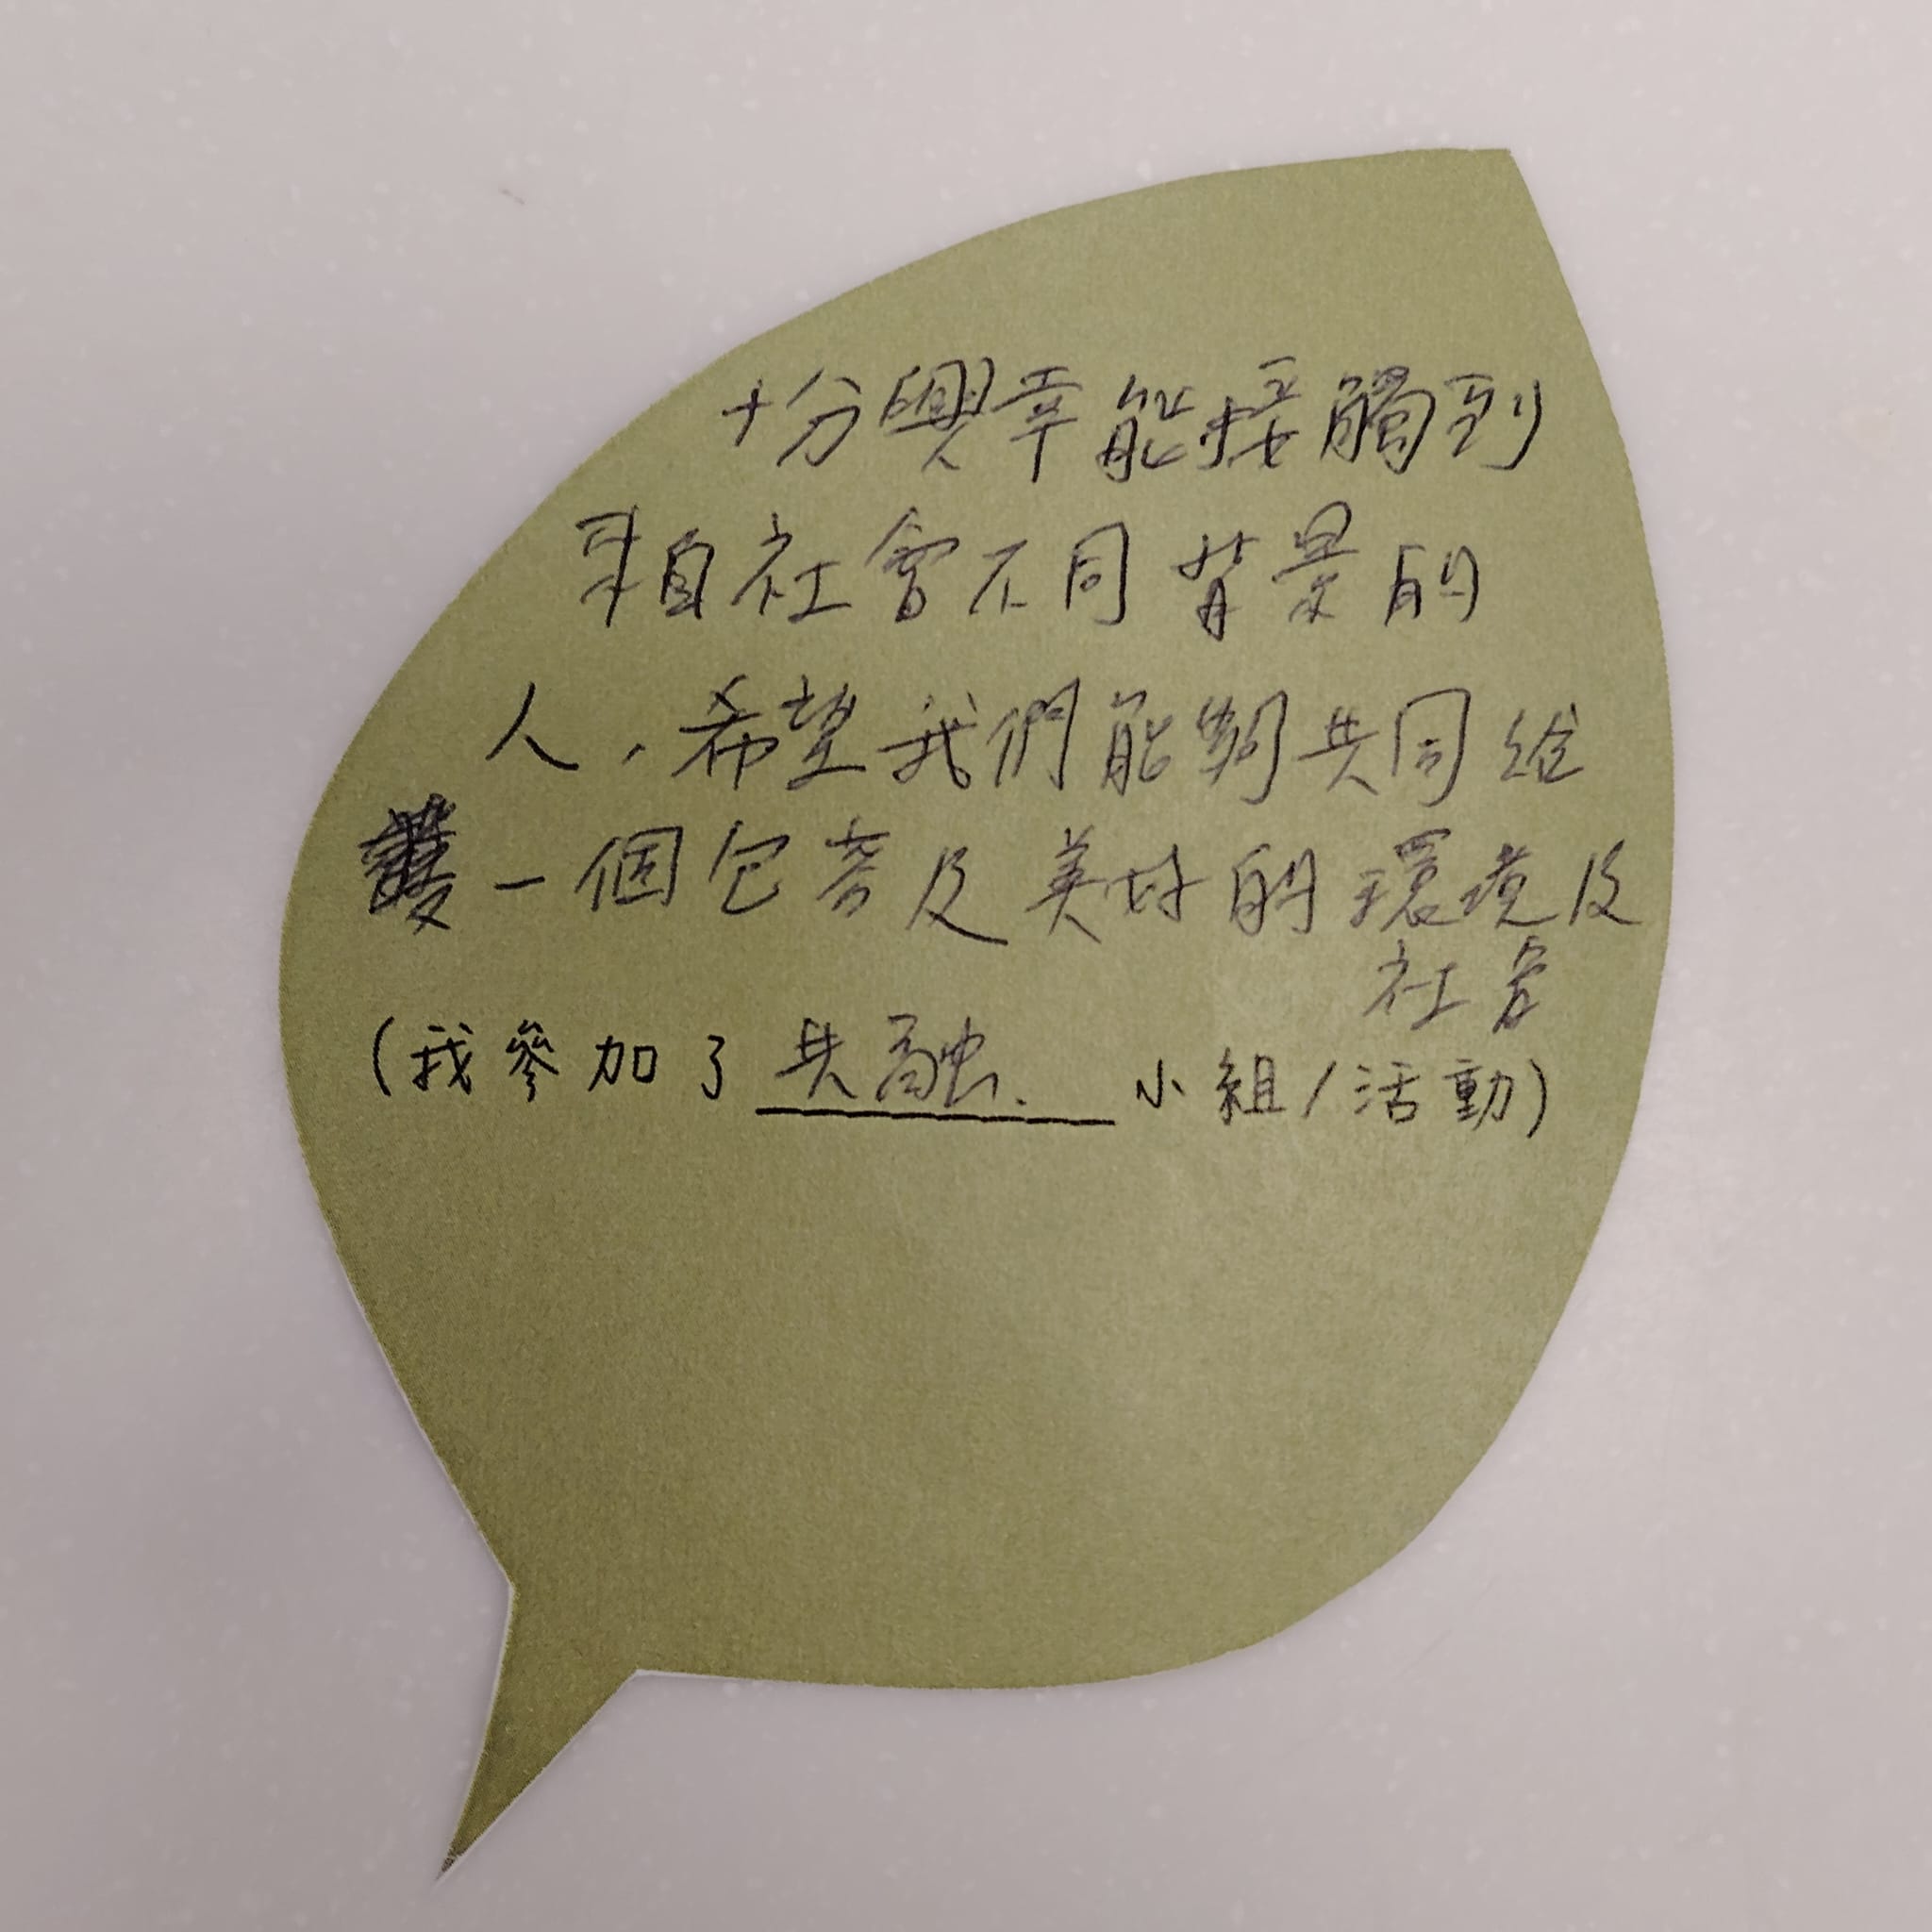 十分興幸能接觸到
來自社會不同背景的
人,希望我們能夠共同給
一個包容及美好的環境及
社會
(我參加了共融 小組/活動)